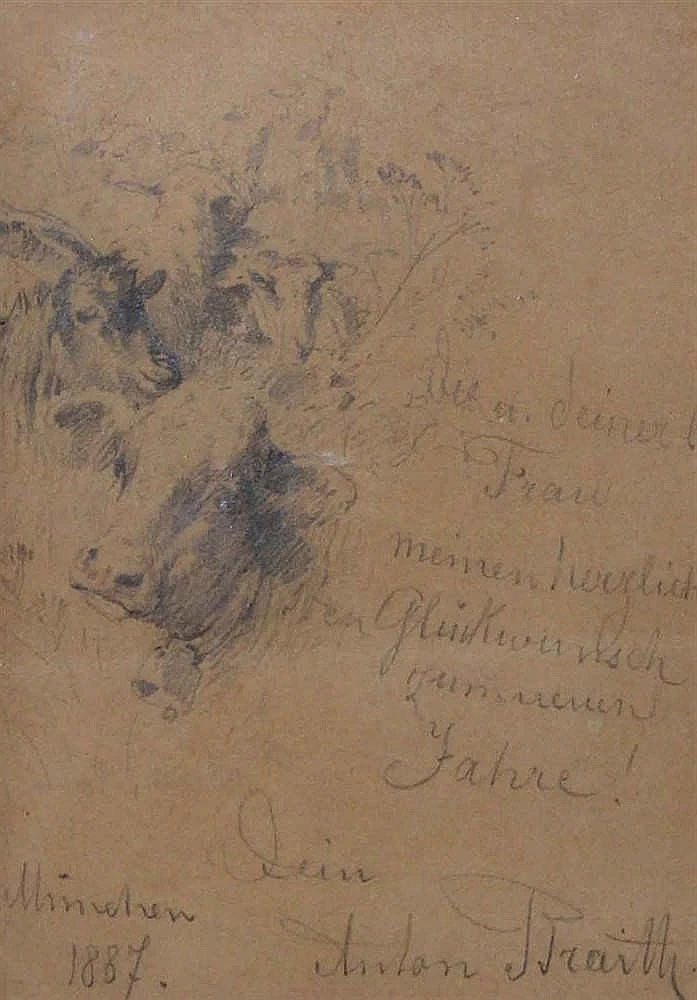 Dir u. deiner l
Frau
meinen herzlich
en Glückwunsch
zum neuen
Jahre!
Dein
München
Anton Braith.
1887.